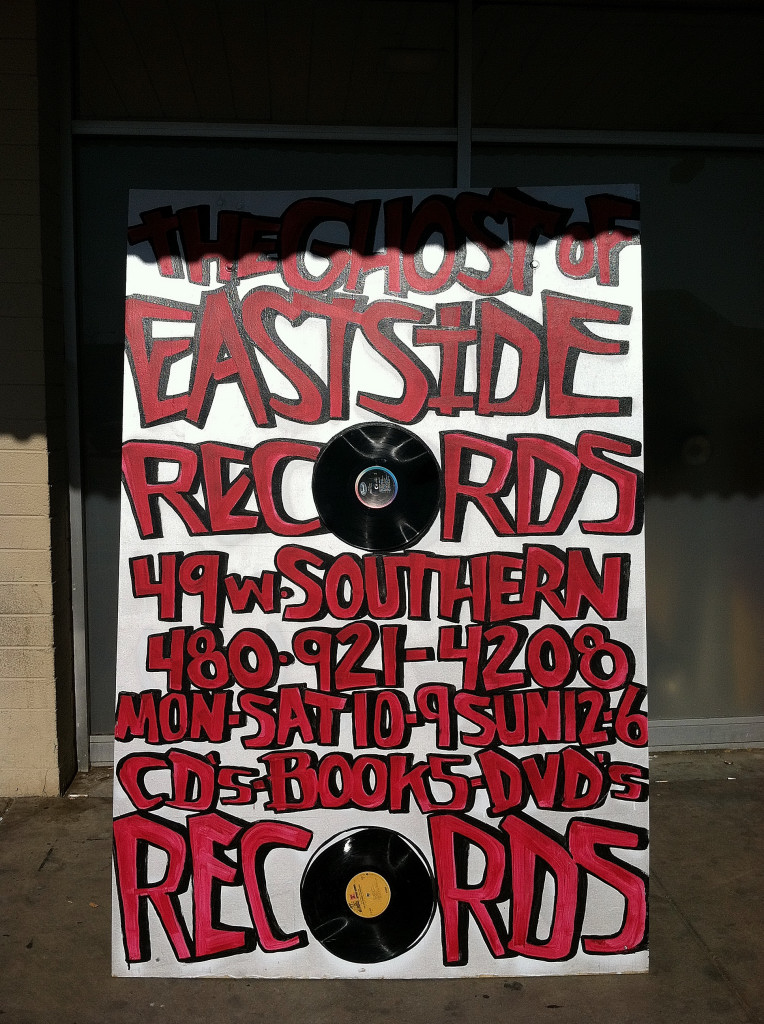 THE GHOST OF
EASTSIDE
RECORDS
49 W. SOUTHERN
480-921-4208
MON-SAT 10-9 SUN 12-6
CD's-BOOKS-DVD's
RECORDS